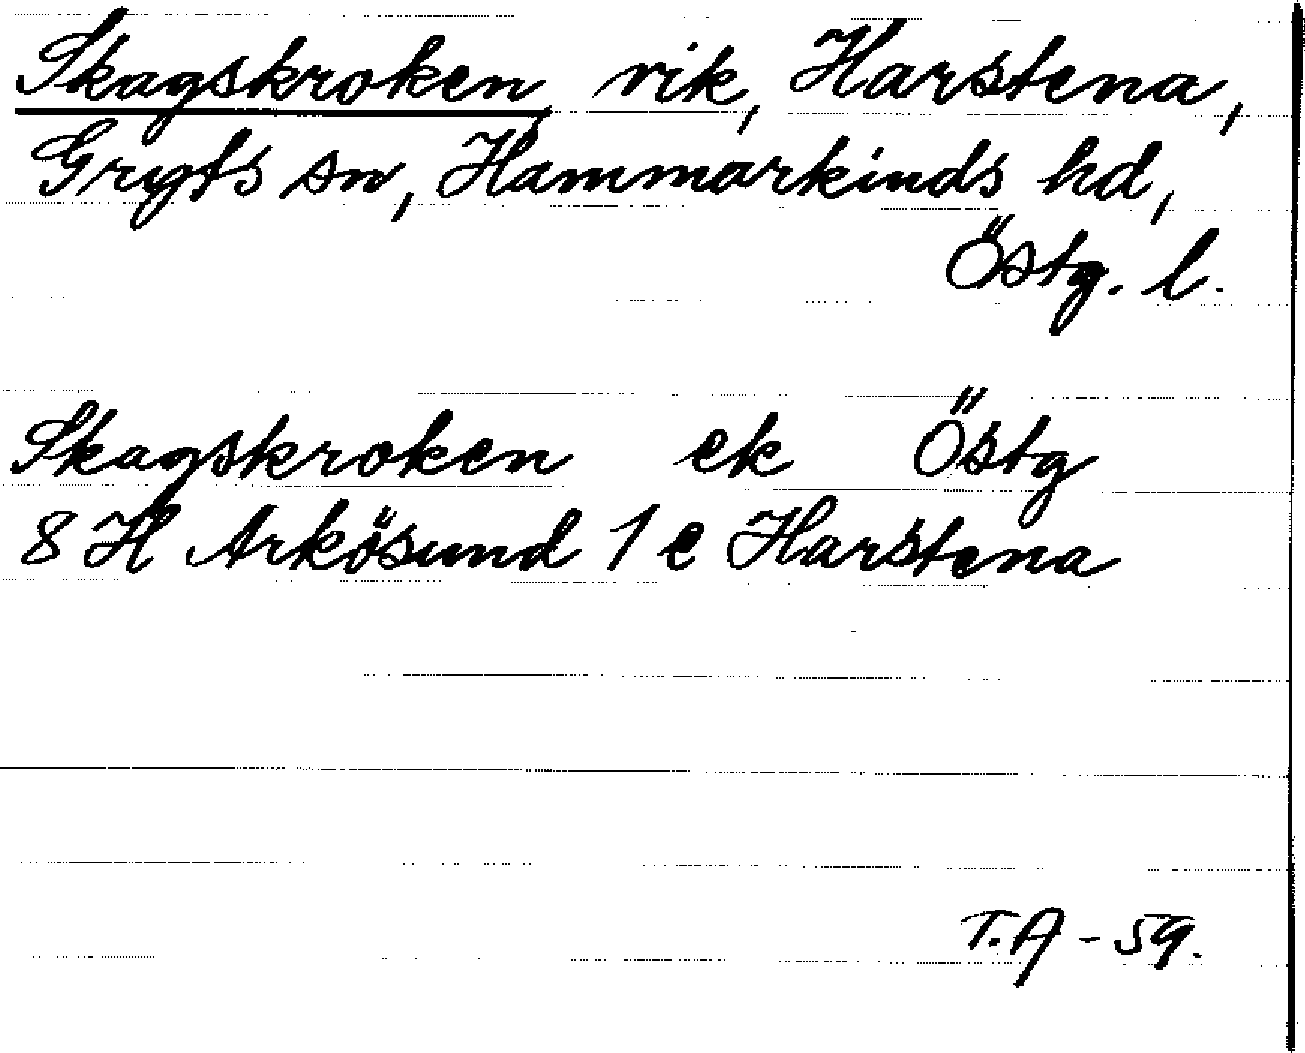 Skagskroken, vik, Harstena,
Gryts sn, Hammarkinds hd,
Östg. l.
Skagskroken ek Östg
8 H Arkösund 1 e Harstena
T.A - 59.